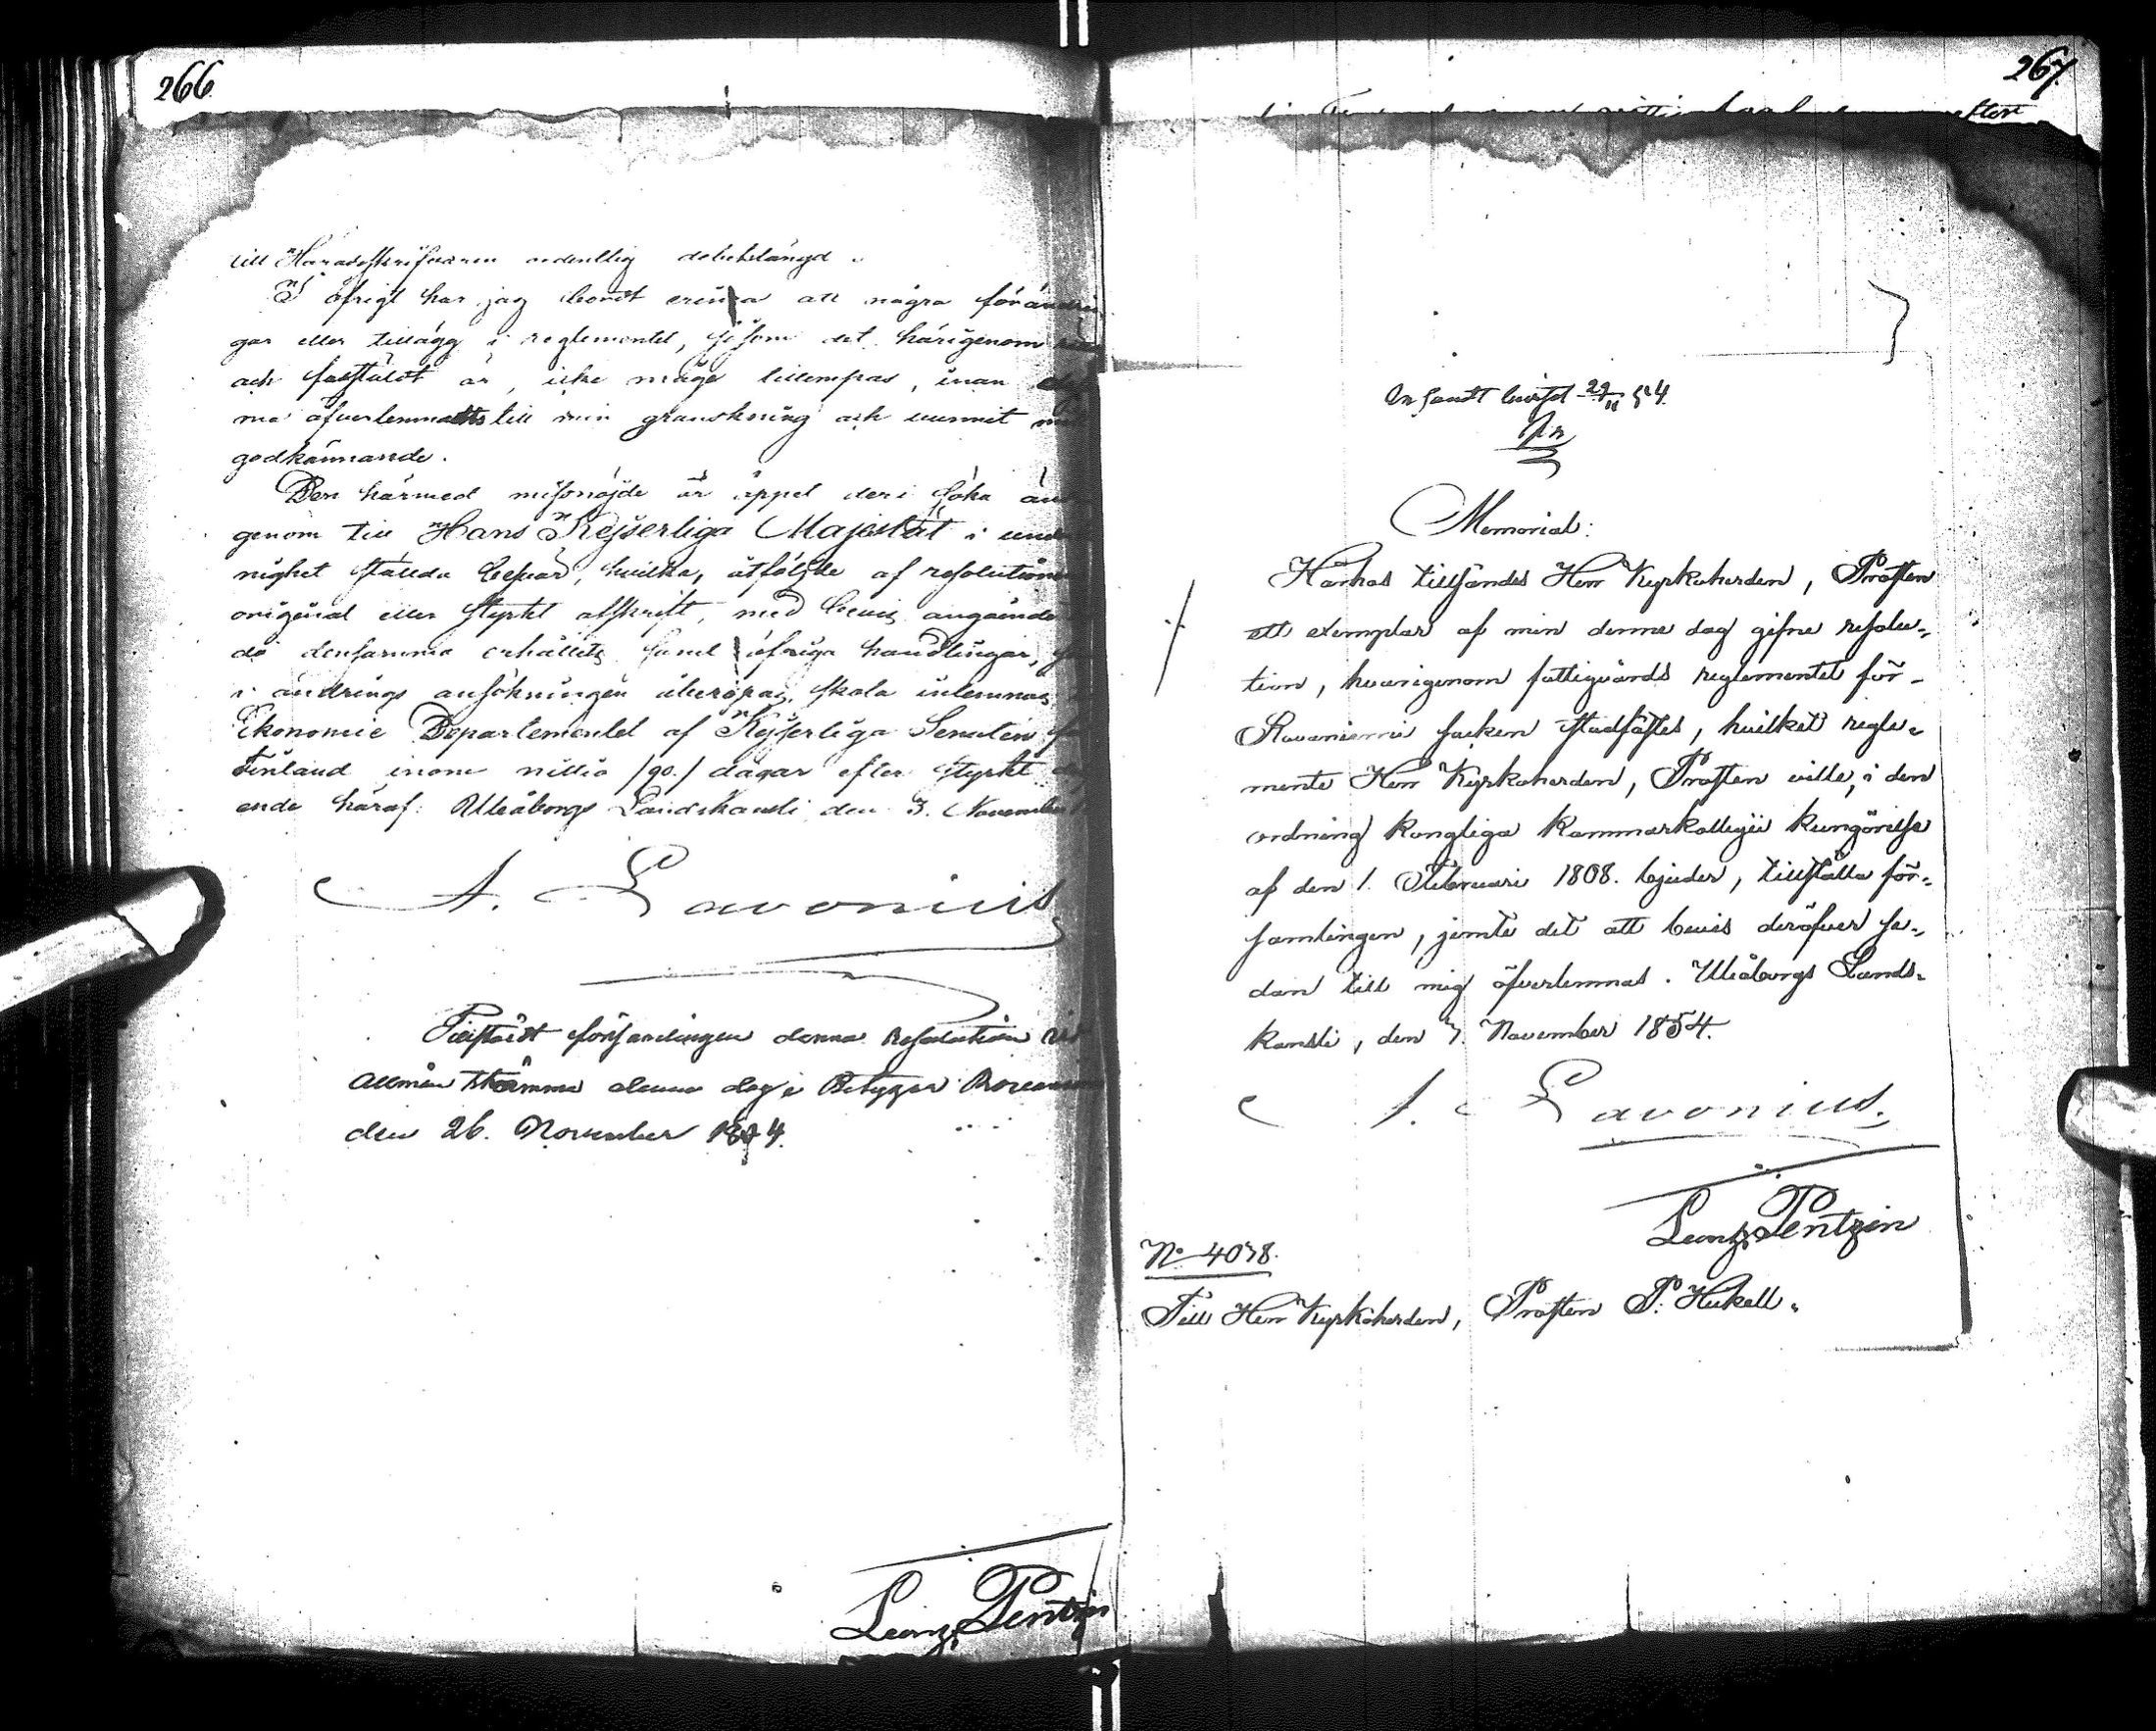 266
till Häradsskrifvaren ordentlig debetslängd.
I öfrigt har jag bordt erinra att några förändrin
gar eller tillägg i reglementet, såsom det härigenom
och faststäldt är, icke måge tillempas, innan
ma öfverlemnatts till min granskning och vunnit mitt
godkännande.
Den härmed missnöjde är öppet deri söka än
genom till Hans Kejserliga Majestät i under
nighet stälda besvär, hvilka, åtföljde af resolutionen
original eller styrkt afskrift, med bevis angående
då densamma erhållits samt öfriga handlingar,
i ändrings ansökningen åberopas, skola inlemnas
Ekonomie Departementet af Kejserliga Senaten för
Finland inom nittio /90./ dagar efter styrkt
ende häraf. Uleåborgs Landskansli den 3. November
A. Lavonius
Tillstäldt församlingen denna Resolution vid
allmän Stämma denna dag; Betygar Rovaniemi
den 26. November 1854.
Leonz. Pentzin
267.
efter
Insändt beviset 29/11 54.
Memorial:
Härhos tillsändes Herr Kyrkoherden, Prosten
ett exemplar af min denna dag gifne resolu-
tion, hvarigenom fattigvårds reglementet för
Rovaniemi socken stadfästes, hvilket regle-
mente Herr Kyrkoherden, Prosten ville, i den
ordning Kongliga Kammarkollegii kungörelse
af den 1. Februari 1808. bjuder, tillställa för-
samlingen, jemte det att bevis deröfver se-
dan till mig öfverlemnas. Uleåborgs Lands-
kansli, den 7. November 1854.
A. Lavonius.
Leonz. Pentzin
No 4078.
Till Herr Kyrkoherden, Prosten P. Heikell.